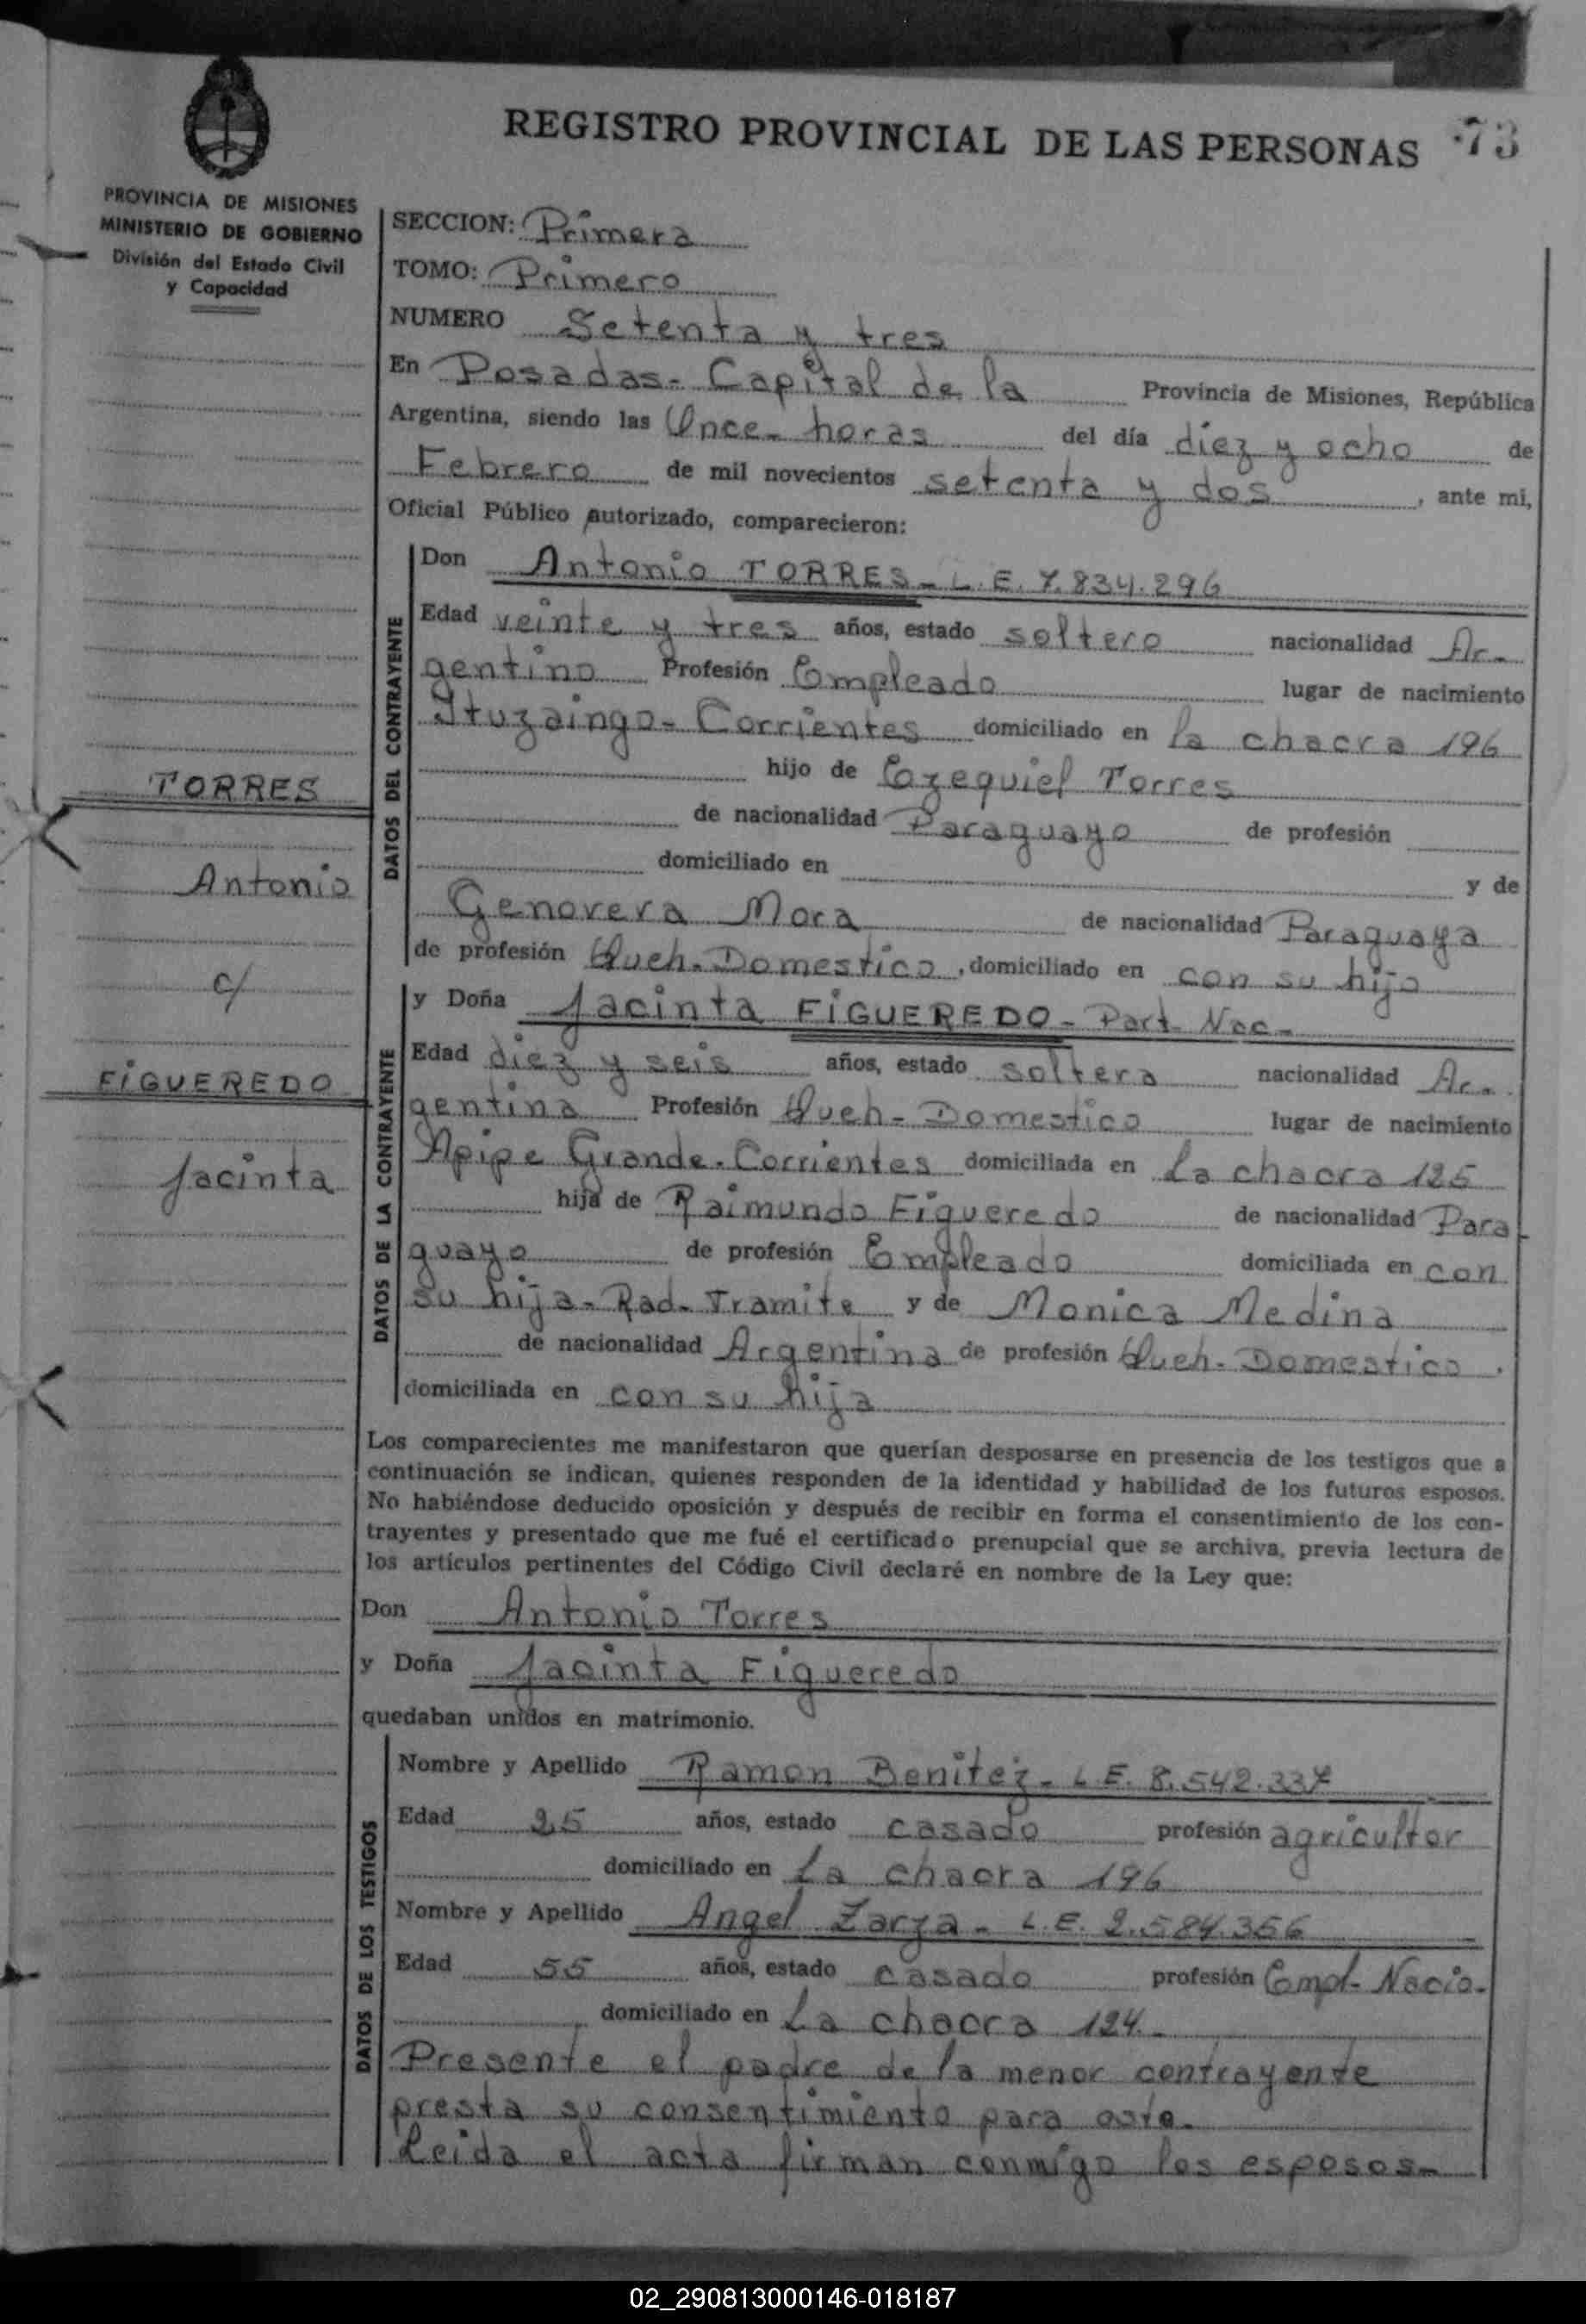 REGISTRO PROVINCIAL DE LAS PERSONAS 73
PROVINCIA DE MISIONES
MINISTERIO DE GOBIERNO
División del Estado Civil
y Capacidad
SECCION: Primera
TOMO: Primero
NUMERO Setenta y tres
En Posadas - Capital de la Provincia de Misiones, República
Argentina, siendo las Once - horas del día diez y ocho de
Febrero de mil novecientos setenta y dos, ante mi,
Oficial Público autorizado, comparecieron:
DATOS DEL CONTRAYENTE
Don Antonio TORRES - L.E. 7.834.296
Edad veinte y tres años, estado soltero nacionalidad Ar-
gentino Profesión Empleado lugar de nacimiento
Ituzaingo - Corrientes domiciliado en la chacra 196
hijo de Ezequiel Torres
de nacionalidad Paraguayo de profesión
domiciliado en y de
Genovera Mora de nacionalidad Paraguaya
de profesión Queh. Domestico, domiciliado en con su hijo
DATOS DE LA CONTRAYENTE
y Doña Jacinta FIGUEREDO - Part. Nac -
Edad diez y seis años, estado soltera nacionalidad Ar-
gentina Profesión Queh - Domestico lugar de nacimiento
Apipe Grande - Corrientes domiciliada en La chacra 125
hija de Raimundo Figueredo de nacionalidad Para-
guayo de profesión Empleado domiciliada en con
su hija - Rad. Tramite y de Monica Medina
de nacionalidad Argentina de profesión Queh - Domestico.
domiciliada en con su hija
TORRES
Antonio
c/
FIGUEREDO
Jacinta
Los comparecientes me manifestaron que querían desposarse en presencia de los testigos que a
continuación se indican, quienes responden de la identidad y habilidad de los futuros esposos.
No habiéndose deducido oposición y después de recibir en forma el consentimiento de los con-
trayentes y presentado que me fué el certificado prenupcial que se archiva, previa lectura de
los artículos pertinentes del Código Civil declaré en nombre de la Ley que:
Don Antonio Torres
y Doña Jacinta Figueredo
quedaban unidos en matrimonio.
DATOS DE LOS TESTIGOS
Nombre y Apellido Ramon Benitez - L.E. 8.542.337
Edad 25 años, estado casado profesión agricultor
domiciliado en La chacra 196
Nombre y Apellido Angel Zarza - L.E. 2.584.356
Edad 55 años, estado casado profesión Empl - Nacio.
domiciliado en La chacra 124.
Presente el padre de la menor contrayente
presta su consentimiento para este.
Leida el acta firman conmigo los esposos -
02_290813000146-018187